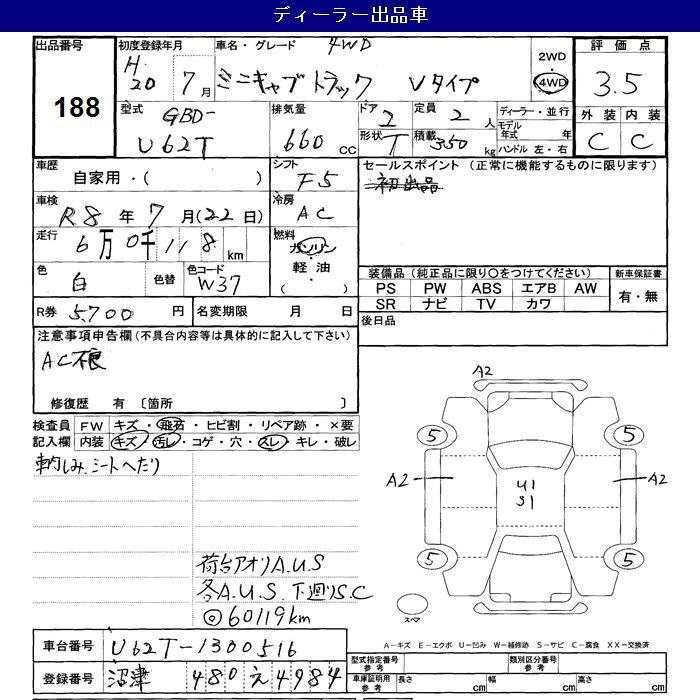 ディーラー出品車
出品番号
188
初度登録年月
H 20 7月
車名・グレード 4WD
ミニキャブトラック Vタイプ
2WD
4WD
評価点
3.5
外装 内装
C C
型式 GBD-
U62T
排気量
660 cc
ドア 2
形状 T
定員 2 人
積載 350 kg
ディーラー・並行
モデル年式 年
ハンドル 左・右
車歴
自家用・( )
シフト
F5
セールスポイント (正常に機能するものに限ります)
初出品
車検
R8 年 7 月(22日)
冷房
AC
走行
6万0千118km
燃料
ガソリン
・軽油・
( )
色
白
色替
色コード
W37
装備品(純正品に限り○をつけてください)
PS PW ABS エアB AW
SR ナビ TV カワ
新車保証書
有・無
R券 5,700 円
名変期限 月 日
後日品
注意事項申告欄(不具合内容等は具体的に記入して下さい)
AC不良
修復歴 有 〔箇所 〕
検査員記入欄
FW キズ・飛石・ヒビ割・リペア跡・×要
内装 キズ・汚レ・コゲ・穴・スレ・キレ・破レ
車内しみ、シートへたり
荷台アオリA.U.S
各A.U.S. 下廻りS.C
◎60119km
A2
5 5
A2 A2
U1
S1
5 5
スペア
A-キズ E-エクボ U-凹み W-補修跡 S-サビ C-腐食 XX-交換済
車台番号 U62T-1300516
登録番号 沼津 480 え 4984
型式指定番号 参考
類別区分番号 参考
車庫証明用 参考
長さ cm 幅 cm 高さ cm